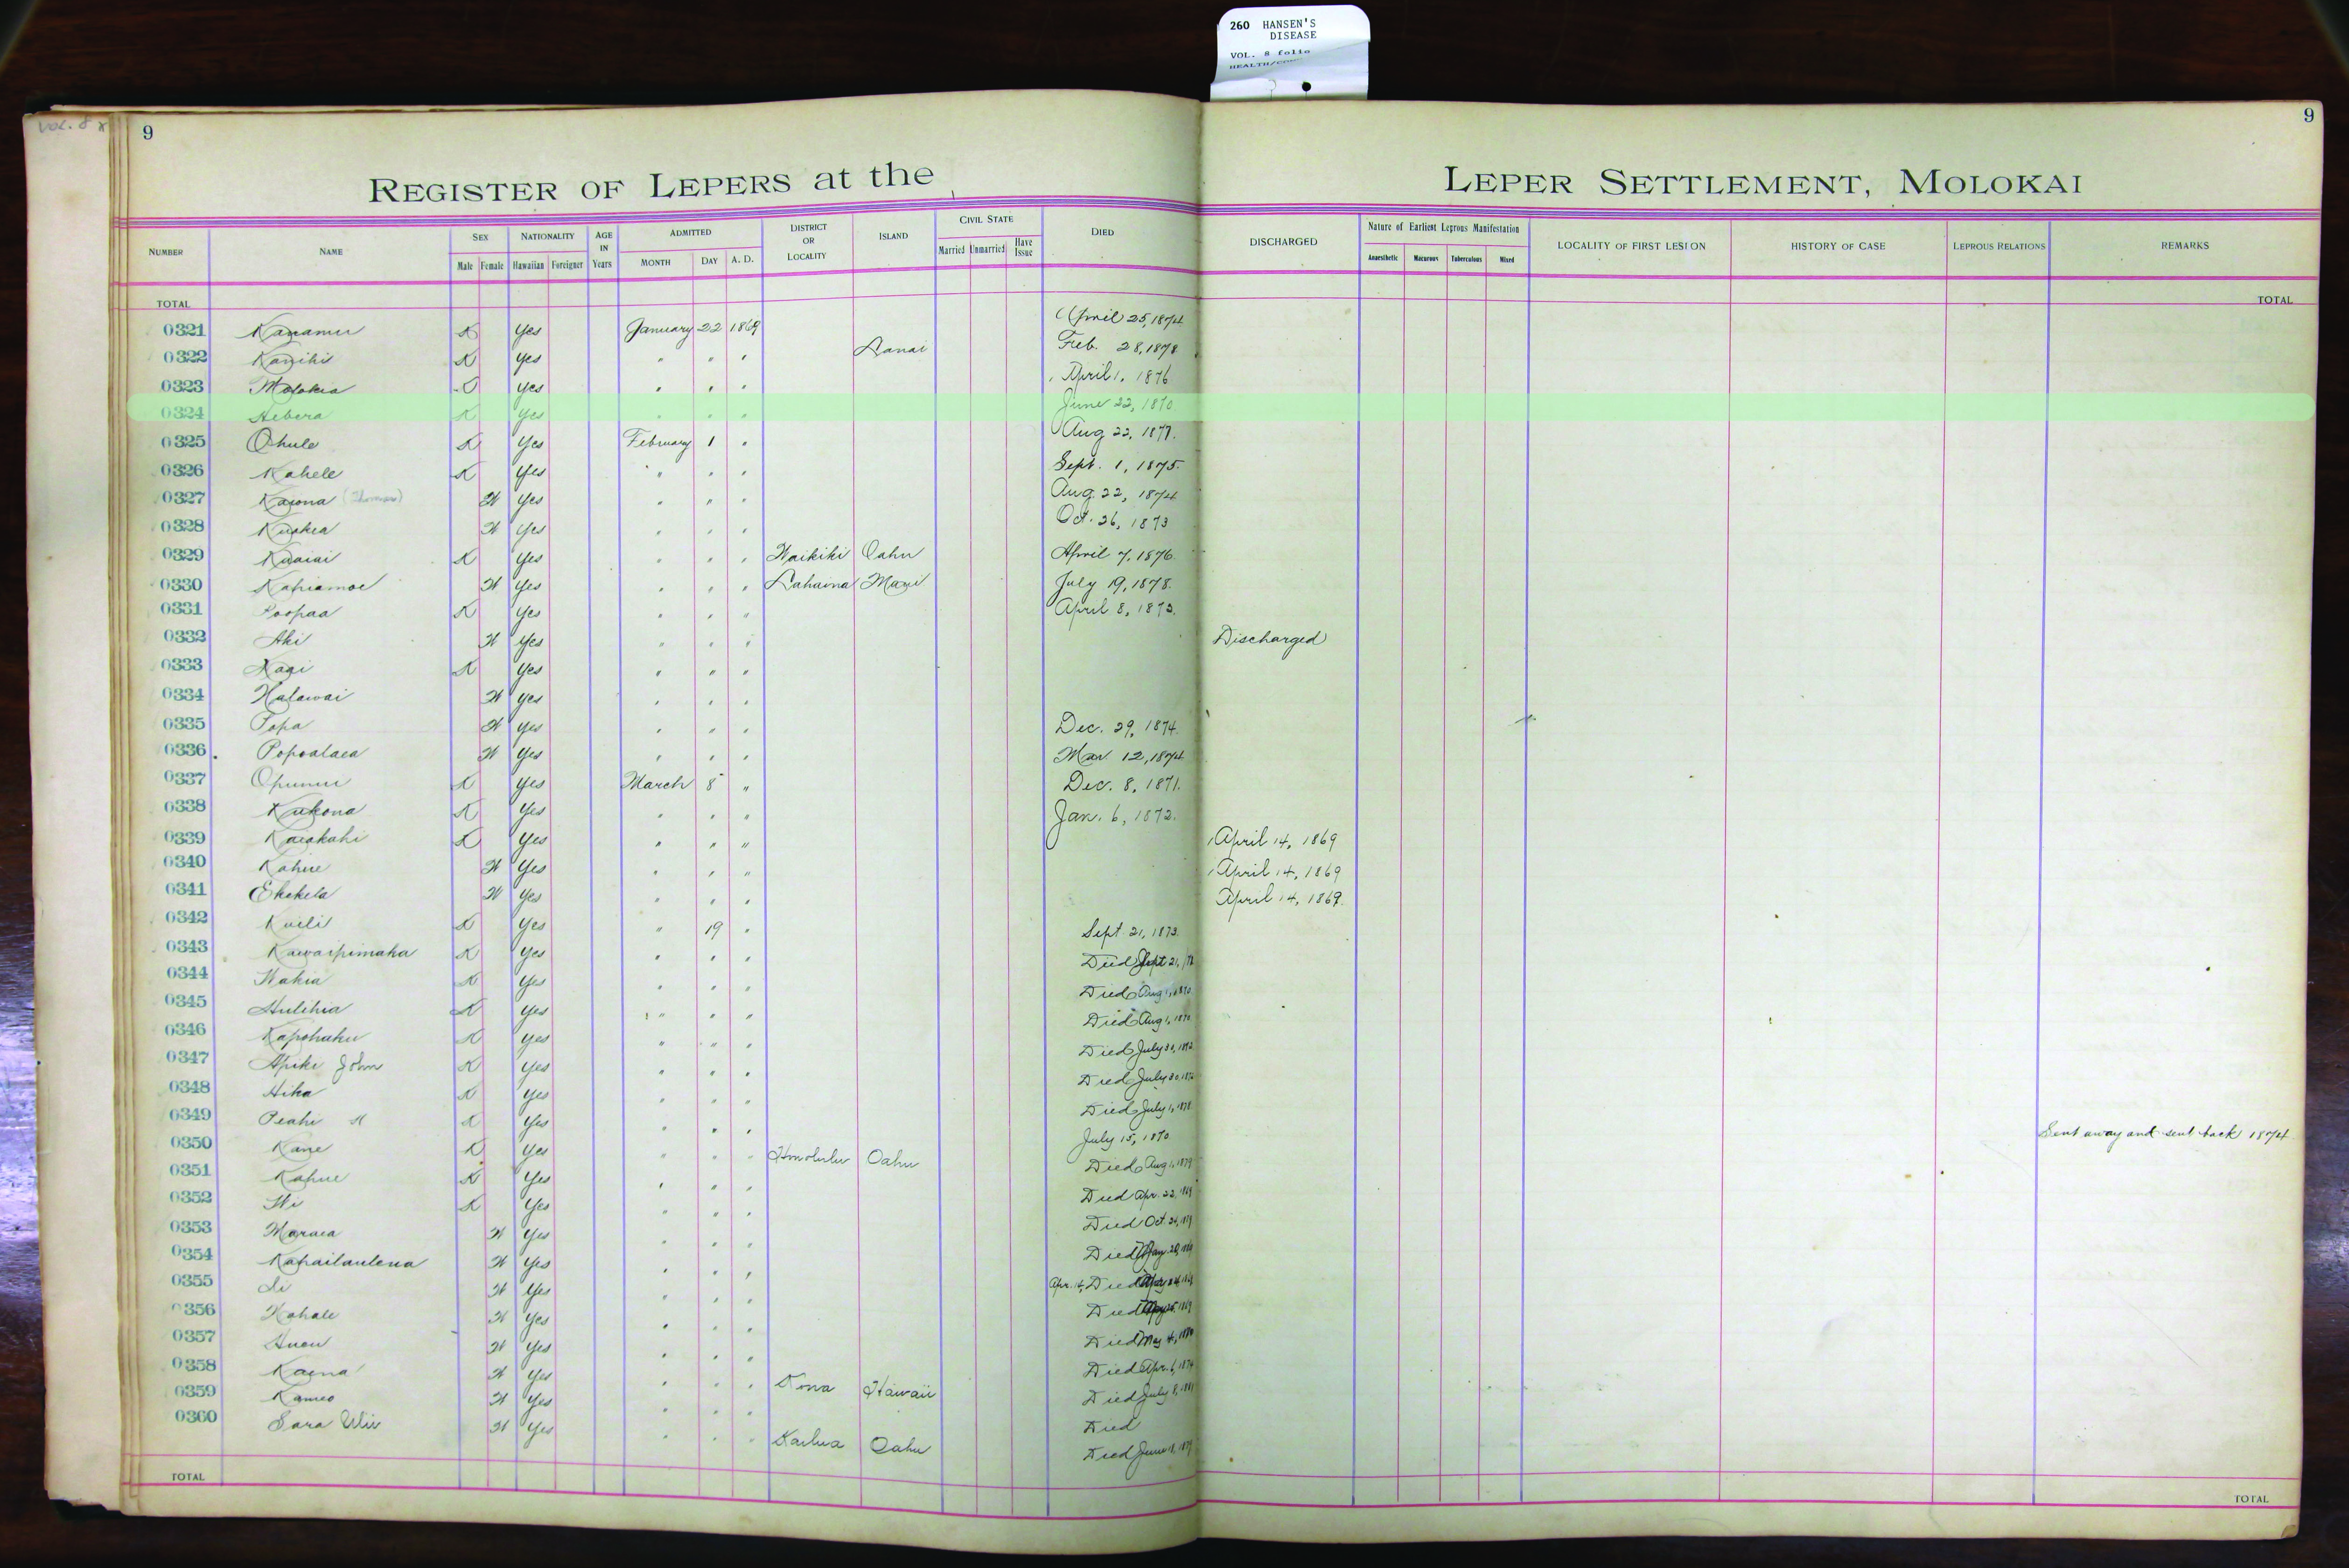 260 HANSEN'S
DISEASE
VOL. 8 folio
Vol. 8
9
9
REGISTER OF LEPERS at the LEPER SETTLEMENT, MOLOKAI
NUMBER NAME SEX NATIONALITY AGE IN Years ADMITTED DISTRICT OR LOCALITY ISLAND CIVIL STATE DIED DISCHARGED Nature of Earliest Leprous Manifestation LOCALITY OF FIRST LESION HISTORY OF CASE LEPROUS RELATIONS REMARKS
Male Female Hawaiian Foreigner MONTH DAY A. D. Married Unmarried Have Issue Anaesthetic Macurous Tuberculous Mixed
TOTAL TOTAL
0321 Kanamu K Yes January 22 1869 April 25, 1874
0322 Kanihi K Yes " " " Lanai Feb. 28, 1878
0323 Molokia Yes " " " April 1, 1876
0324 Hebera K Yes " " " June 22, 1870
0325 Ohule K Yes February 1 " Aug 22, 1877.
0326 Kahele K Yes " " " Sept. 1, 1875.
0327 Kaiona (Thomas) W Yes " " " Aug. 22, 1874
0328 Kuakea W Yes " " " Oct. 26, 1873
0329 Kuaiai K Yes " " " Waikiki Oahu April 7, 1876.
0330 Kahiamoe W Yes " " " Lahaina Maui July 19, 1878.
0331 Poopaa K Yes " " " April 8, 1873.
0332 Aki W Yes " " " Discharged
0333 Kaai K Yes " " "
0334 Halawai W Yes " " "
0335 Popa W Yes " " " Dec. 29, 1874.
0336 Popoalaea W Yes " " " Mar 12, 1874
0337 Opunui K Yes March 8 " Dec. 8, 1871.
0338 Kukona K Yes " " " Jan. 6, 1872.
0339 Kaiakahi K Yes " " " April 14, 1869
0340 Kahue W Yes " " " April 14, 1869
0341 Ekekela W Yes " " " April 14, 1869.
0342 Kuili K Yes " 19 " Sept. 21, 1873.
0343 Kawaipimaka K Yes " " " Died Sept 21,
0344 Wakia K Yes " " " Died Aug 1, 1870
0345 Hulihia K Yes " " " Died Aug 1, 1870
0346 Kapohaku K Yes " " " Died July 30, 1872
0347 Apiki John K Yes " " " Died July 30, 1872
0348 Hika K Yes " " " Died July 1, 1878
0349 Peahi K Yes " " " July 15, 1870 Sent away and sent back 1874
0350 Kane K Yes " " " Honolulu Oahu Died Aug 1, 1879
0351 Kahue K Yes " " " Died Apr. 22, 1869
0352 Wi K Yes " " " Died Oct. 24,
0353 Maraea W Yes " " " Died
0354 Kahailaulena W Yes " " " Apr. 14, Died
0355 Li W Yes " " " Died
0356 Kahale W Yes " " " Died May 4,
0357 Auou W Yes " " " Died Apr. 6, 1874
0358 Kaena W Yes " " " Kona Hawaii Died July 8, 1881
0359 Kameo W Yes " " " Died
0360 Sara Wiu W Yes " " " Kailua Oahu Died June 18, 1879
TOTAL TOTAL